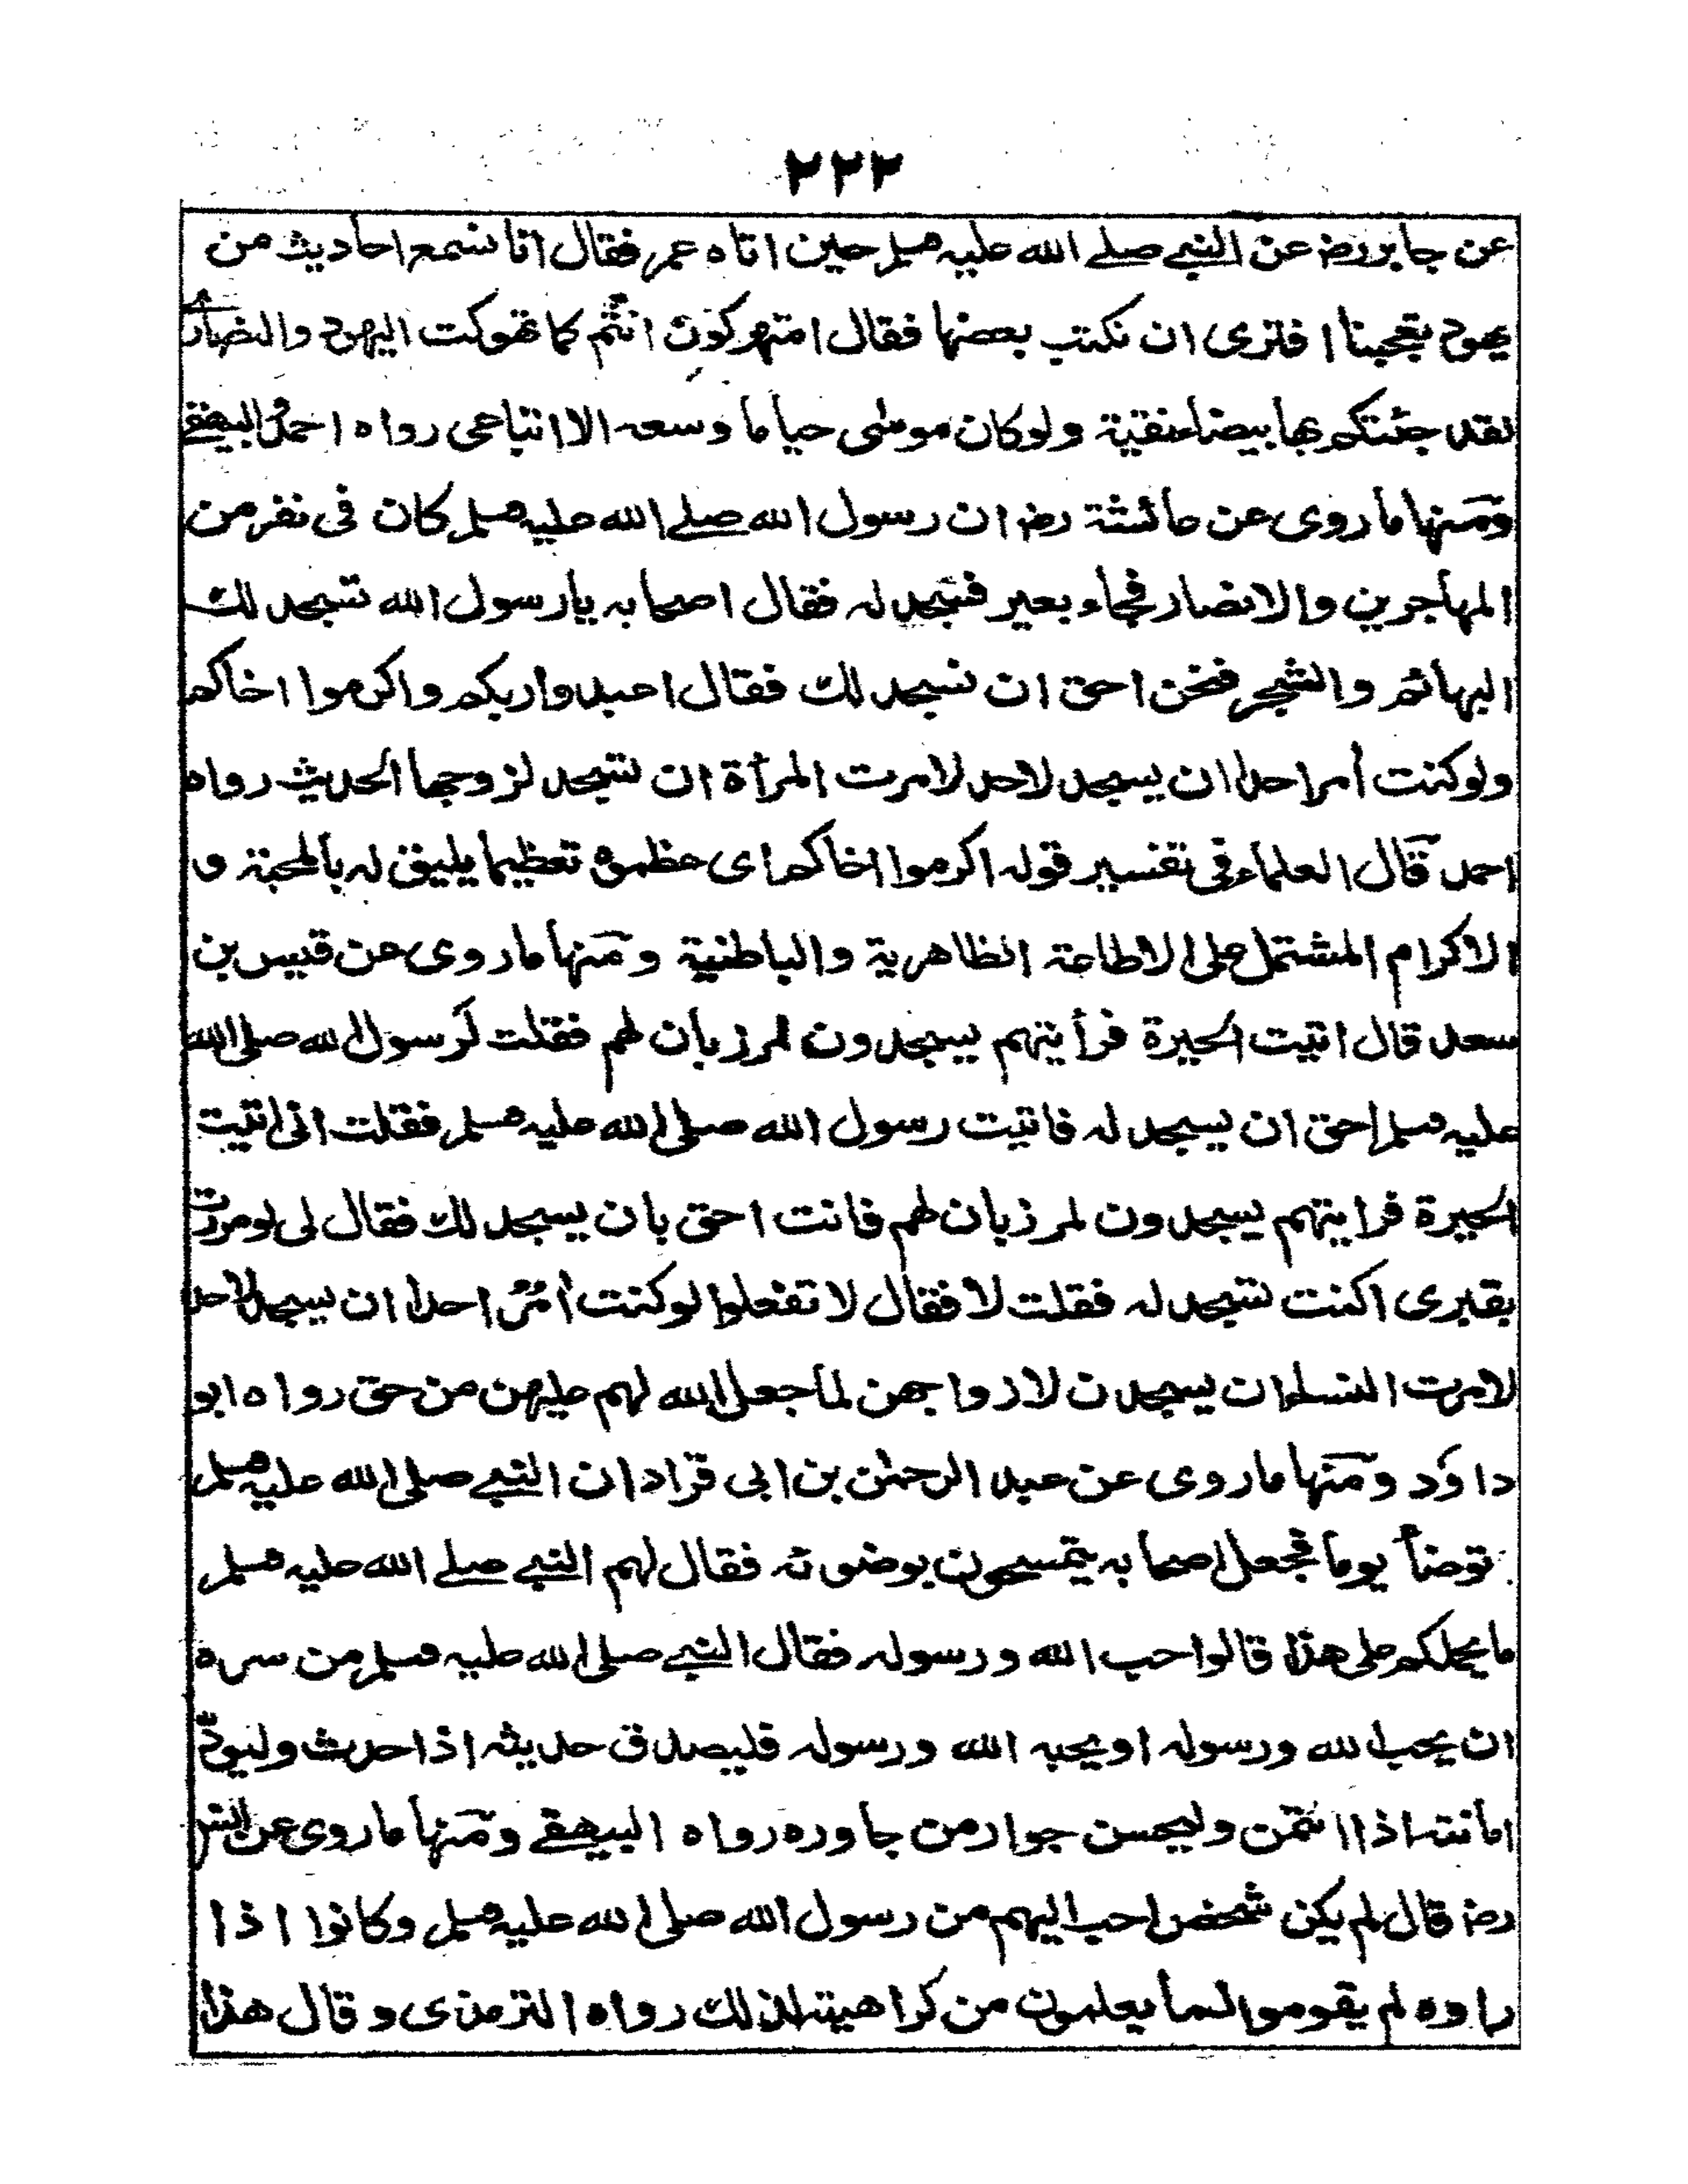 ٢٢٢
عن جابر رضـ عن النبي صلے الله عليه وسلم حين اتاه عمر فقال انا نسمع احاديث من
يهود تعجبنا افترى ان نكتب بعضها فقال امتهوكون انتم كما تهوكت اليهود والنصارے
لقد جئتكم بها بيضاء نقية ولو كان موسى حيا ما وسعه الا اتباعى رواه احمد والبيهقے
ومنها ما روى عن عائشة رضـ ان رسول الله صلے الله عليه وسلم كان فى نفر من
المهاجرين والانصار فجاء بعير فسجد له فقال اصحابه يا رسول الله تسجد لك
البهائم والشجر فنحن احق ان نسجد لك فقال اعبدوا ربكم واكرموا اخاكم
ولو كنت أمر احدا ان يسجد لاحد لامرت المرأة ان تسجد لزوجها الحديث رواه
احمد قال العلماء فى تفسير قوله اكرموا اخاكم اى عظموه تعظيما يليق له بالمحبة و
الاكرام المشتمل على الاطاعة الظاهرية والباطنية ومنها ما روى عن قيس بن
سعد قال اتيت الحيرة فرأيتهم يسجدون لمرزبان لهم فقلت لرسول الله صلى الله
عليه وسلم احق ان يسجد له فاتيت رسول الله صلى الله عليه وسلم فقلت انى اتيت
الحيرة فرايتهم يسجدون لمرزبان لهم فانت احق بان يسجد لك فقال لى لو مررت
بقبرى اكنت تسجد له فقلت لا فقال لا تفعلوا لو كنت أمر احدا ان يسجد لاحد
لامرت النساء ان يسجدن لازواجهن لما جعل الله لهم عليهن من حق رواه ابو
داود ومنها ما روى عن عبد الرحمٰن بن ابى قراد ان النبے صلى الله عليه وسلم
توضأ يوما فجعل اصحابه يتمسحون بوضوئه فقال لهم النبے صلے الله عليه وسلم
ما يحملكم على هذا قالوا حب الله ورسوله فقال النبے صلى الله عليه وسلم من سره
ان يحب الله ورسوله او يحبه الله ورسوله فليصدق حديثه اذا حدث وليؤد
امانته اذا ائتمن وليحسن جوار من جاوره رواه البيهقے ومنها ما روى عن انس
رضـ قال لم يكن شخص احب اليهم من رسول الله صلى الله عليه وسلم وكانوا اذا
راوه لم يقوموا لما يعلمون من كراهيته لذلك رواه الترمذى وقال هذا